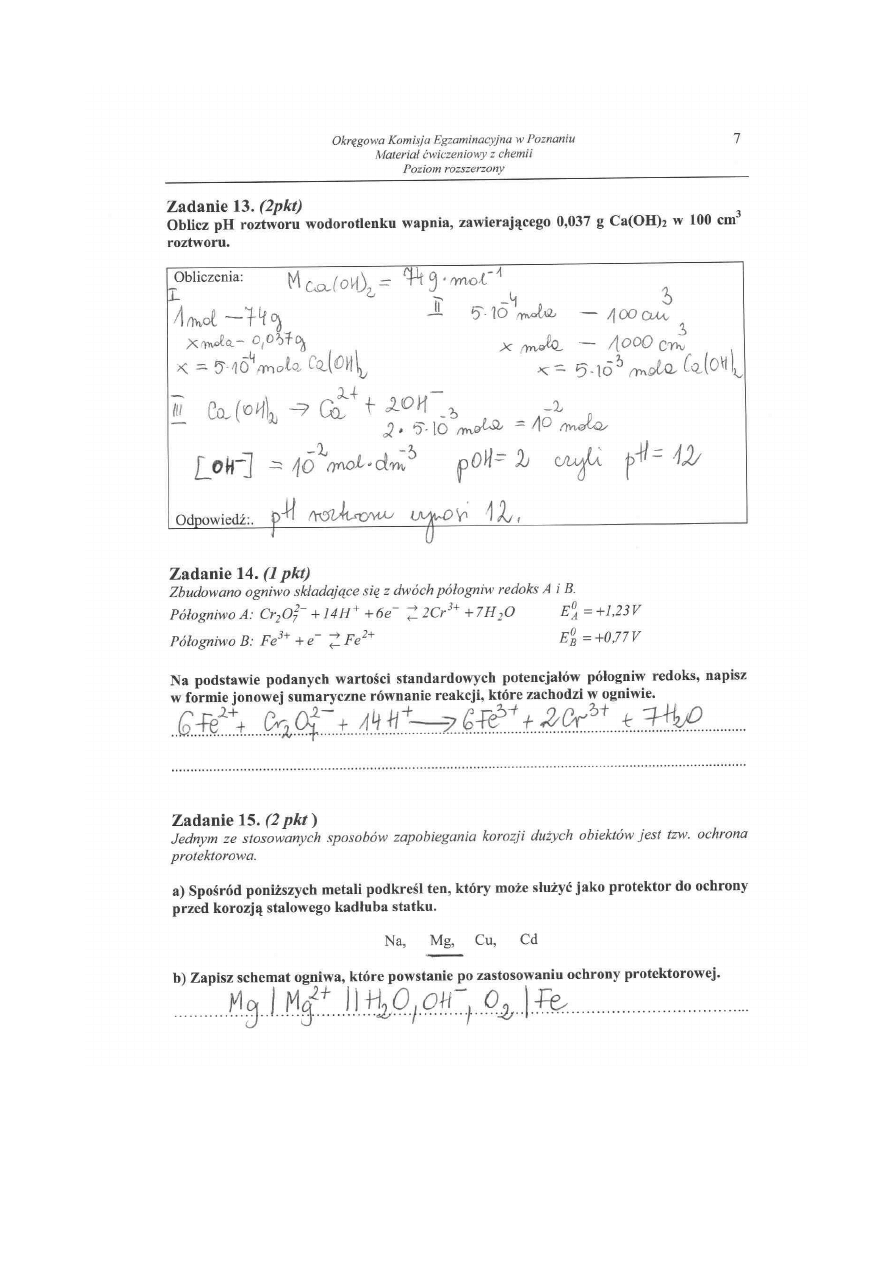 Okręgowa Komisja Egzaminacyjna w Poznaniu 7
Materiał ćwiczeniowy z chemii
Poziom rozszerzony
Zadanie 13. (2pkt)
Oblicz pH roztworu wodorotlenku wapnia, zawierającego 0,037 g Ca(OH)₂ w 100 cm³
roztworu.
Obliczenia: M Ca(OH)₂ = 74 g·mol⁻¹
I
1mol — 74g
x mola - 0,037g
x = 5·10⁻⁴ mola Ca(OH)₂
II 5·10⁻⁴ mola — 100 cm³
x mola — 1000 cm³
x = 5·10⁻³ mola Ca(OH)₂
III Ca(OH)₂ → Ca²⁺ + 2OH⁻
2 · 5·10⁻³ mola = 10⁻² mola
[OH⁻] = 10⁻² mol·dm⁻³ pOH = 2 czyli pH = 12
Odpowiedź:. pH roztworu wynosi 12.
Zadanie 14. (1 pkt)
Zbudowano ogniwo składające się z dwóch półogniw redoks A i B.
Półogniwo A: Cr₂O₇²⁻ + 14H⁺ + 6e⁻ ⇄ 2Cr³⁺ + 7H₂O E⁰A = +1,23V
Półogniwo B: Fe³⁺ + e⁻ ⇄ Fe²⁺ E⁰B = +0,77V
Na podstawie podanych wartości standardowych potencjałów półogniw redoks, napisz
w formie jonowej sumaryczne równanie reakcji, które zachodzi w ogniwie.
6Fe²⁺ + Cr₂O₇²⁻ + 14H⁺ → 6Fe³⁺ + 2Cr³⁺ + 7H₂O
Zadanie 15. (2 pkt )
Jednym ze stosowanych sposobów zapobiegania korozji dużych obiektów jest tzw. ochrona
protektorowa.
a) Spośród poniższych metali podkreśl ten, który może służyć jako protektor do ochrony
przed korozją stalowego kadłuba statku.
Na, Mg, Cu, Cd
b) Zapisz schemat ogniwa, które powstanie po zastosowaniu ochrony protektorowej.
Mg | Mg²⁺ || H₂O, OH⁻, O₂ | Fe